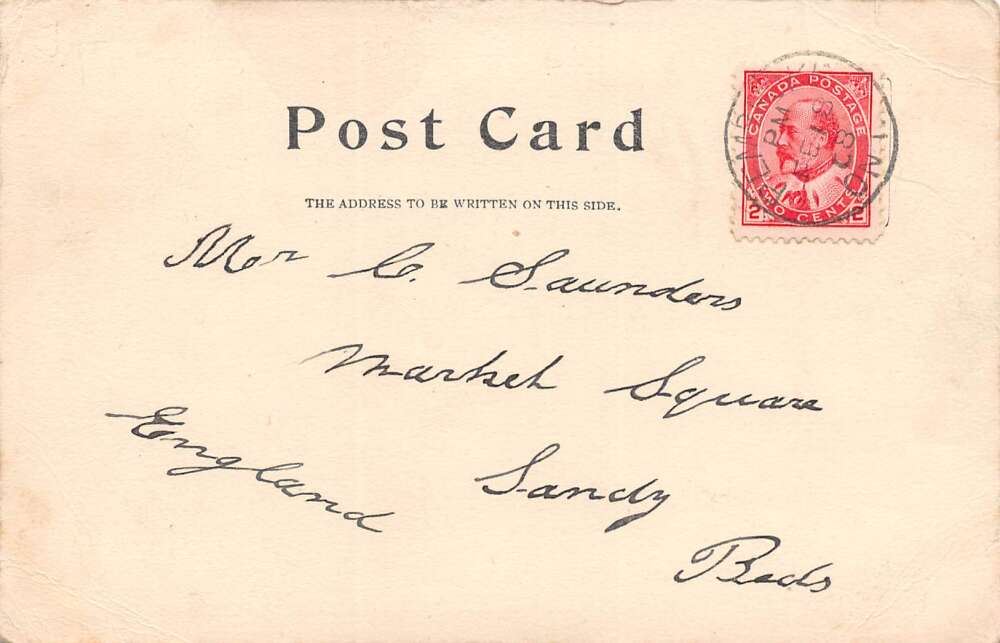 Post Card
THE ADDRESS TO BE WRITTEN ON THIS SIDE.
CANADA POSTAGE
2 TWO CENTS 2
PM
08
ONT
Mr C. Saunders
Market Square
Sandy
Beds
England